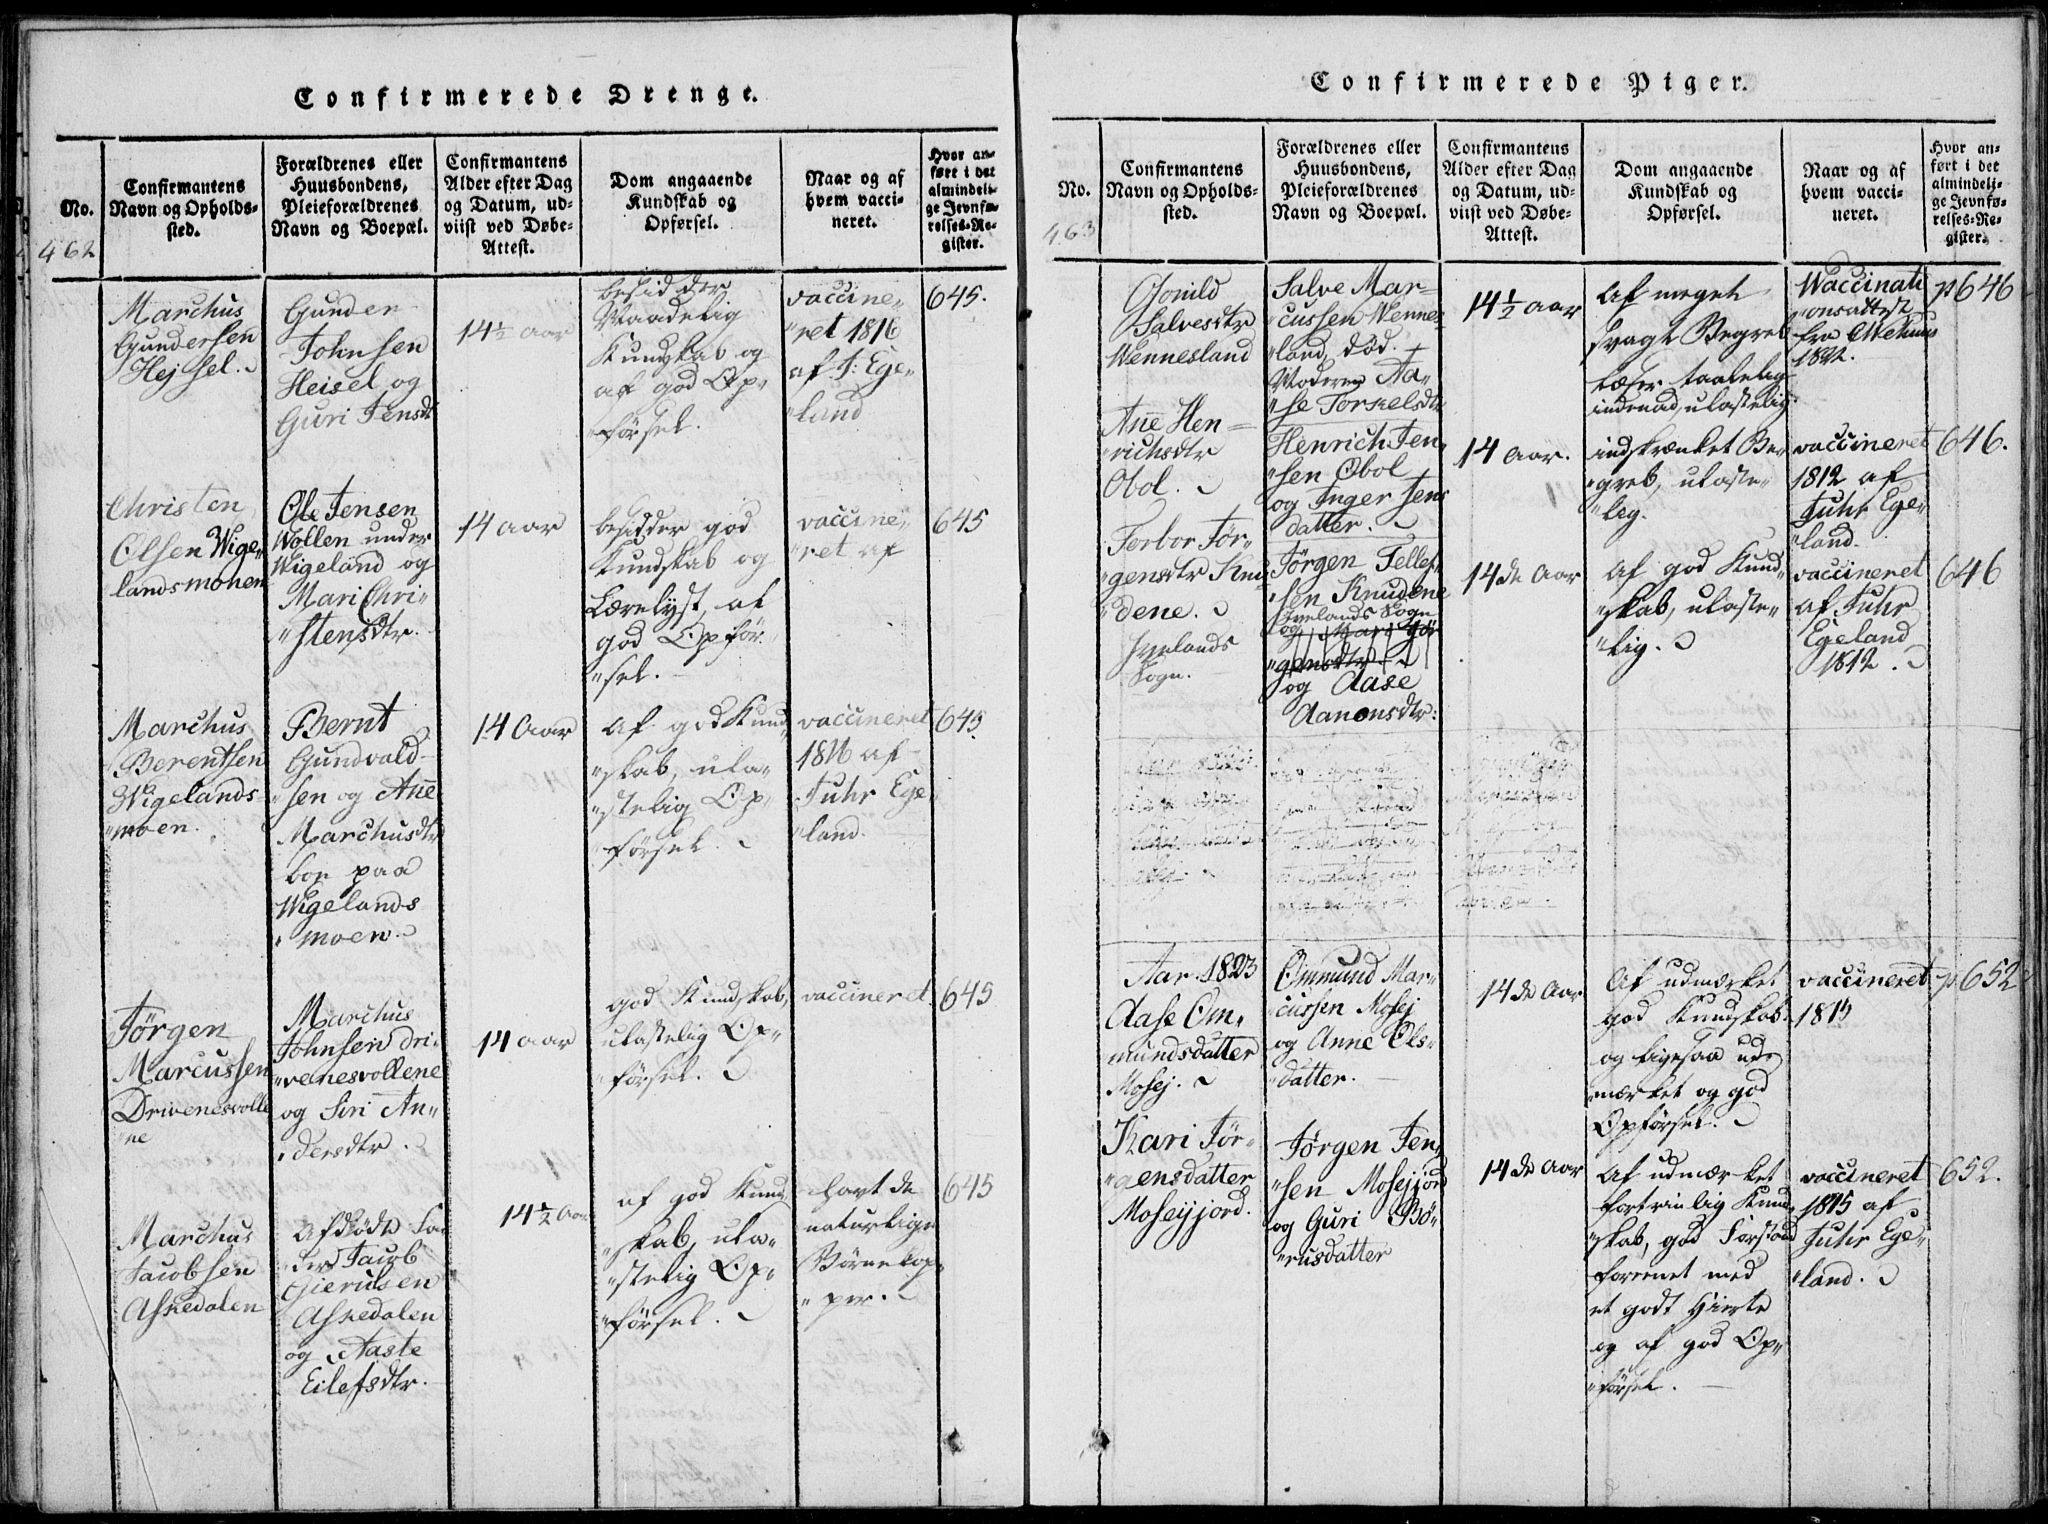 Confirmerede Drenge.
No.
Confirmantens
Navn og Opholds-
sted.
Forældrenes eller
Huusbondens,
Pleieforældrenes
Navn og Boepæl.
Confirmantens
Alder efter Dag
og Datum, ud-
viist ved Døbe-
Attest.
Dom angaaende
Kundskab og
Opførsel.
Naar og af
hvem vacci-
neret.
Hvor an-
ført i det
almindeli-
ge Jevnfø-
relses-Re-
gister.
462
Marchus
Gundersen
Hejsel.
Gunder
Johnsen
Heisel og
Guri Jensdt
14½ aar
besidder
Maadelig
Kundskab og
af god Op„
„førsel.
vaccine„
„ret 1816
af J: Ege„
„land
645.
Christen
Olsen Wige„
landsmonen
Ole Jensen
Wollen under
Wigeland og
Mari Chri„
„stensdtr.
14 aar
besidder god
Kundskab og
Lærelyst, af
god Opfør„
„sel.
vaccine„
„ret af
645
Marchus
Berentsen
Wigelands-
„moen.
Bernt
Gundvald-
„sen og Ane
Marchusdtr
boe paa
Wigelands
„moen.
14 Aar
Af god Kund„
„skab, ula„
„stelig Op„
„førsel.
vaccineret
1816 af
Fuhr Ege„
„land.
645.
Jörgen
Marcussen
Drivenesvolle
„ne
Marchus
Johnsen Dri„
„venesvollene
og Siri An„
„dersdtr.
14 aar
god Kundskab,
ulastelig Op„
„førsel.
vaccineret.
645
Marchus
Jacobsen
Askedalen
Afdöde Fa„
„der Jacob
Gierulsen
Askedalen
og Aaste
Eilefsdtr.
14½ Aar
af god Kund„
„skab, ula„
„stelig Op„
„førsel.
havt de
naturlige
Børnekop„
„per.
645
Confirmerede Piger.
No.
Confirmantens
Navn og Opholds-
sted.
Forældrenes eller
Huusbondens,
Pleieforældrenes
Navn og Boepæl.
Confirmantens
Alder efter Dag
og Datum, ud-
viist ved Døbe-
Attest.
Dom angaaende
Kundskab og
Opførsel.
Naar og af
hvem vacci-
neret.
Hvor an-
ført i det
almindeli-
ge Jevnfø-
relses-Re-
gister.
463
Gonild
Salvesdtr
Wennesland
Salve Mar-
„cussen Wennes
„land, død.
Moderen Aa„
„se Torkelsdtr
14½ aar
Af meget
svagt Begreb
læser taalelig
indenad, ulastelig.
Waccinati
„onsattest
fra
1812.
p646
Ane Hen-
„richsdtr
Obol.
Henrich Jen„
„sen Obol
og Inger Jens
datter.
14 Aar.
indskrænket Be„
„greb, ulaste„
„lig.
vaccineret
1812 af
Fuhr Ege„
„land.
646.
Torbor Jör„
„gensdtr Knu„
„dene.
Ivelands
Sogn.
Jörgen Tellef„
„sen Knudene
Ivelands Sogn
og Kari Jör
„gensdtr.
og Aase
Aanonsdtr:
14de Aar
Af god Kund„
„skab, ulaste„
„lig.
vaccineret
af Fuhr
Egeland
1812.
646
Aar 1823
Aase Om„
mundsdatter
Mosej.
Ommund Mar„
„cussen Mosej
og Anne Ols„
„datter.
14de Aar
Af udmærket
god Kundskab
og ligesaa ud„
„mærket og god
Opførsel.
vaccineret
181
p652
Kari Jör„
„gensdatter
Moseijjord.
Jörgen Jen„
„sen Mosejjord
og Guri Bö„
„rusdatter
14de Aar
Af udmærket
fortrinlig Kund„
„skab, god Forstand
forenet med
et godt Hierte
og af god Op„
„førsel.
vaccineret
1815 af
Fuhr Ege„
„land.
652.